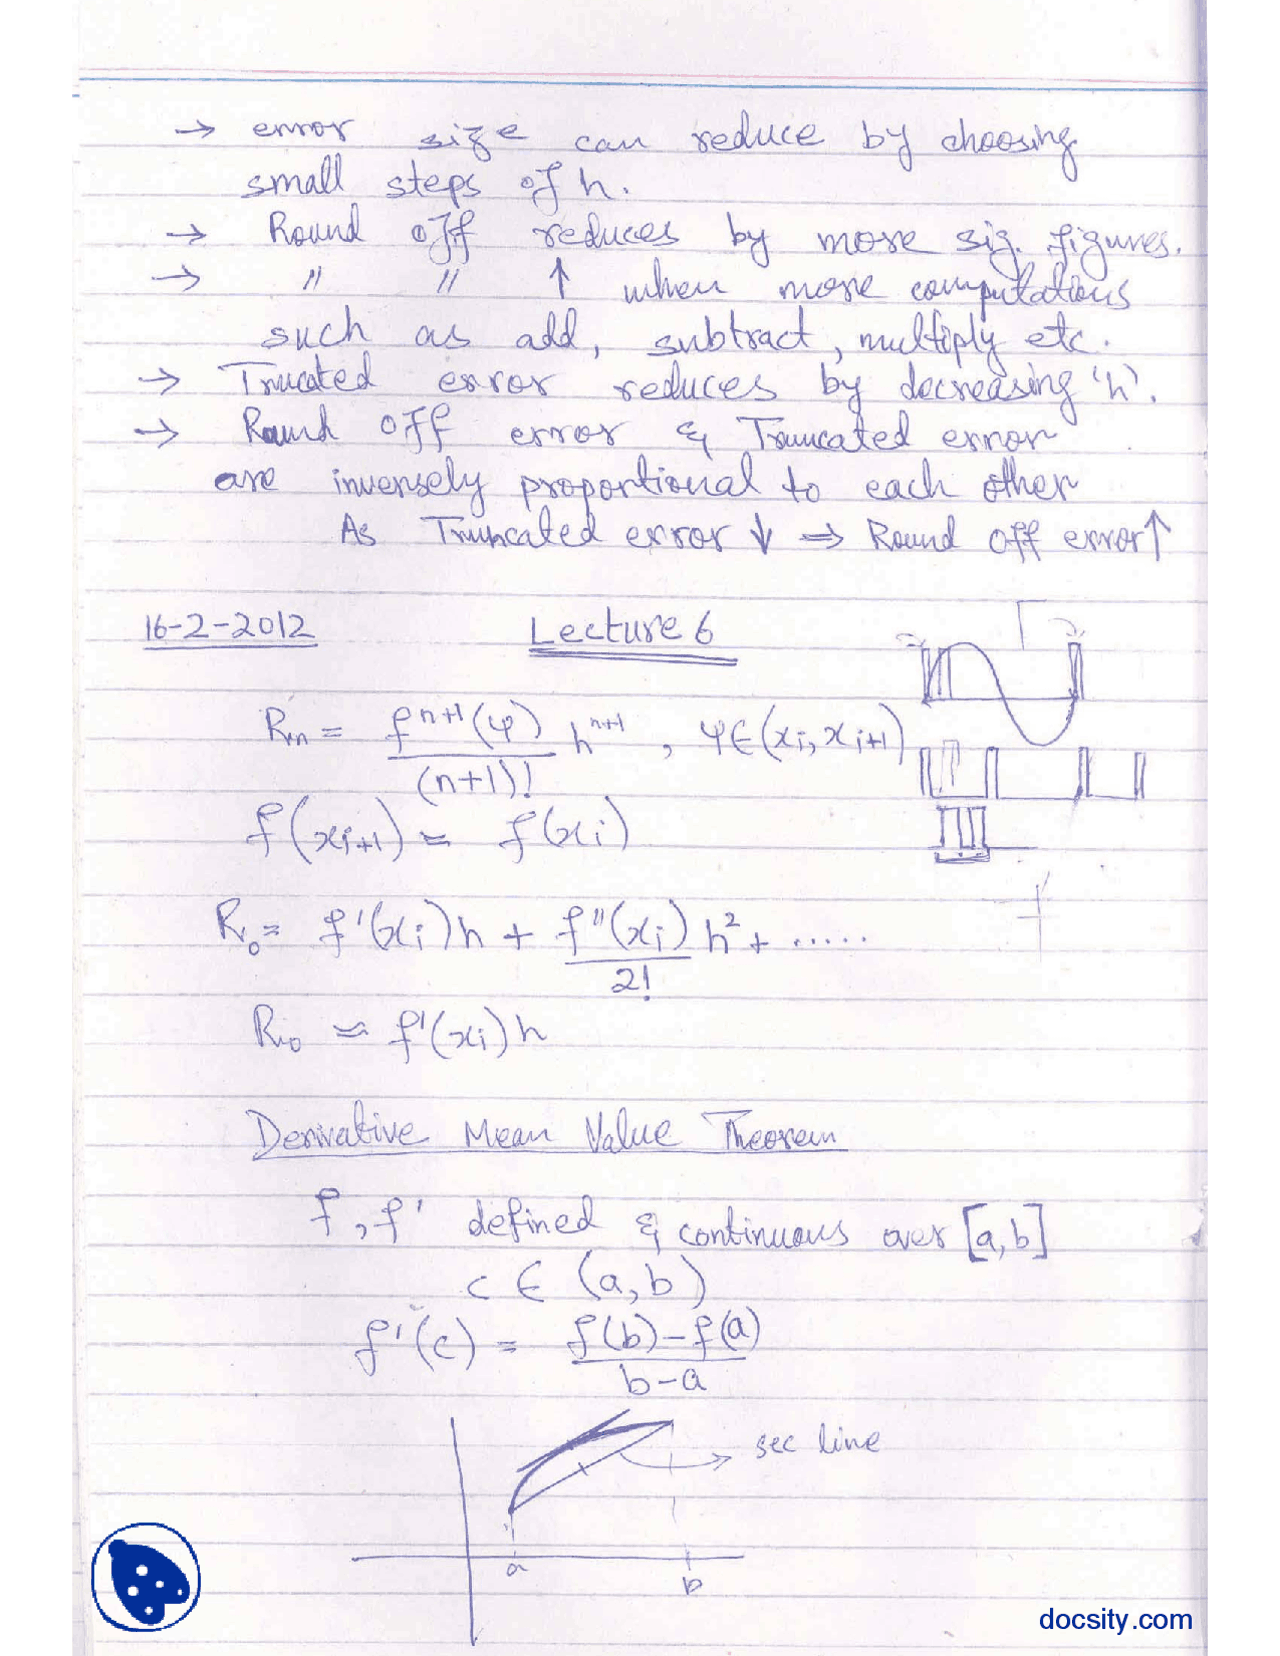 → error size can reduce by choosing
small steps of h.
→ Round off reduces by more sig. figures.
→ " " ↑ when more computations
such as add, subtract, multiply etc.
→ Trucated error reduces by decreasing 'h'.
→ Round off error & Truncated error
are inversely proportional to each other
As Truncated error ↓ ⇒ Round off error ↑
16-2-2012 Lecture 6
Rn = f^(n+1)(φ) / (n+1)! h^(n+1) , φ∈(xi, xi+1)
f(xi+1) ≈ f(xi)
R0 = f'(xi)h + f''(xi)/2! h² + ......
R0 ≈ f'(xi)h
Derivative Mean Value Theorem
f, f' defined & continuous over [a,b]
c ∈ (a,b)
f'(c) = f(b)-f(a) / b-a
sec line
a
b
docsity.com